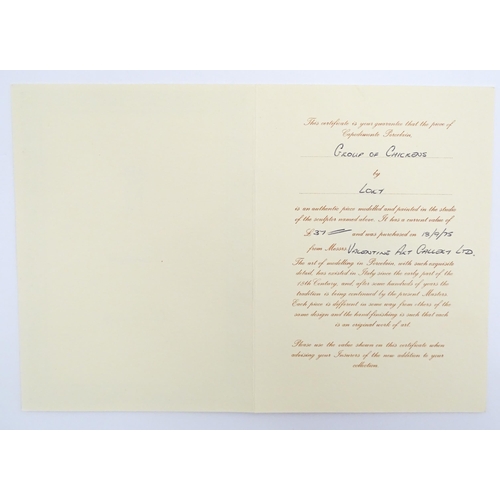 This certificate is your guarantee that the piece of
Capodimonte Porcelain,
GROUP OF CHICKENS
by
LOKY
is an authentic piece modelled and painted in the studio
of the sculptor named above. It has a current value of
£ 37 and was purchased on 13/9/75
from Messrs VALENTINE ART GALLERY LTD.
The art of modelling in Porcelain, with such exquisite
detail, has existed in Italy since the early part of the
18th Century, and, after some hundreds of years the
tradition is being continued by the present Masters.
Each piece is different in some way from others of the
same design and the hand finishing is such that each
is an original work of art.
Please use the value shown on this certificate when
advising your Insurers of the new addition to your
collection.